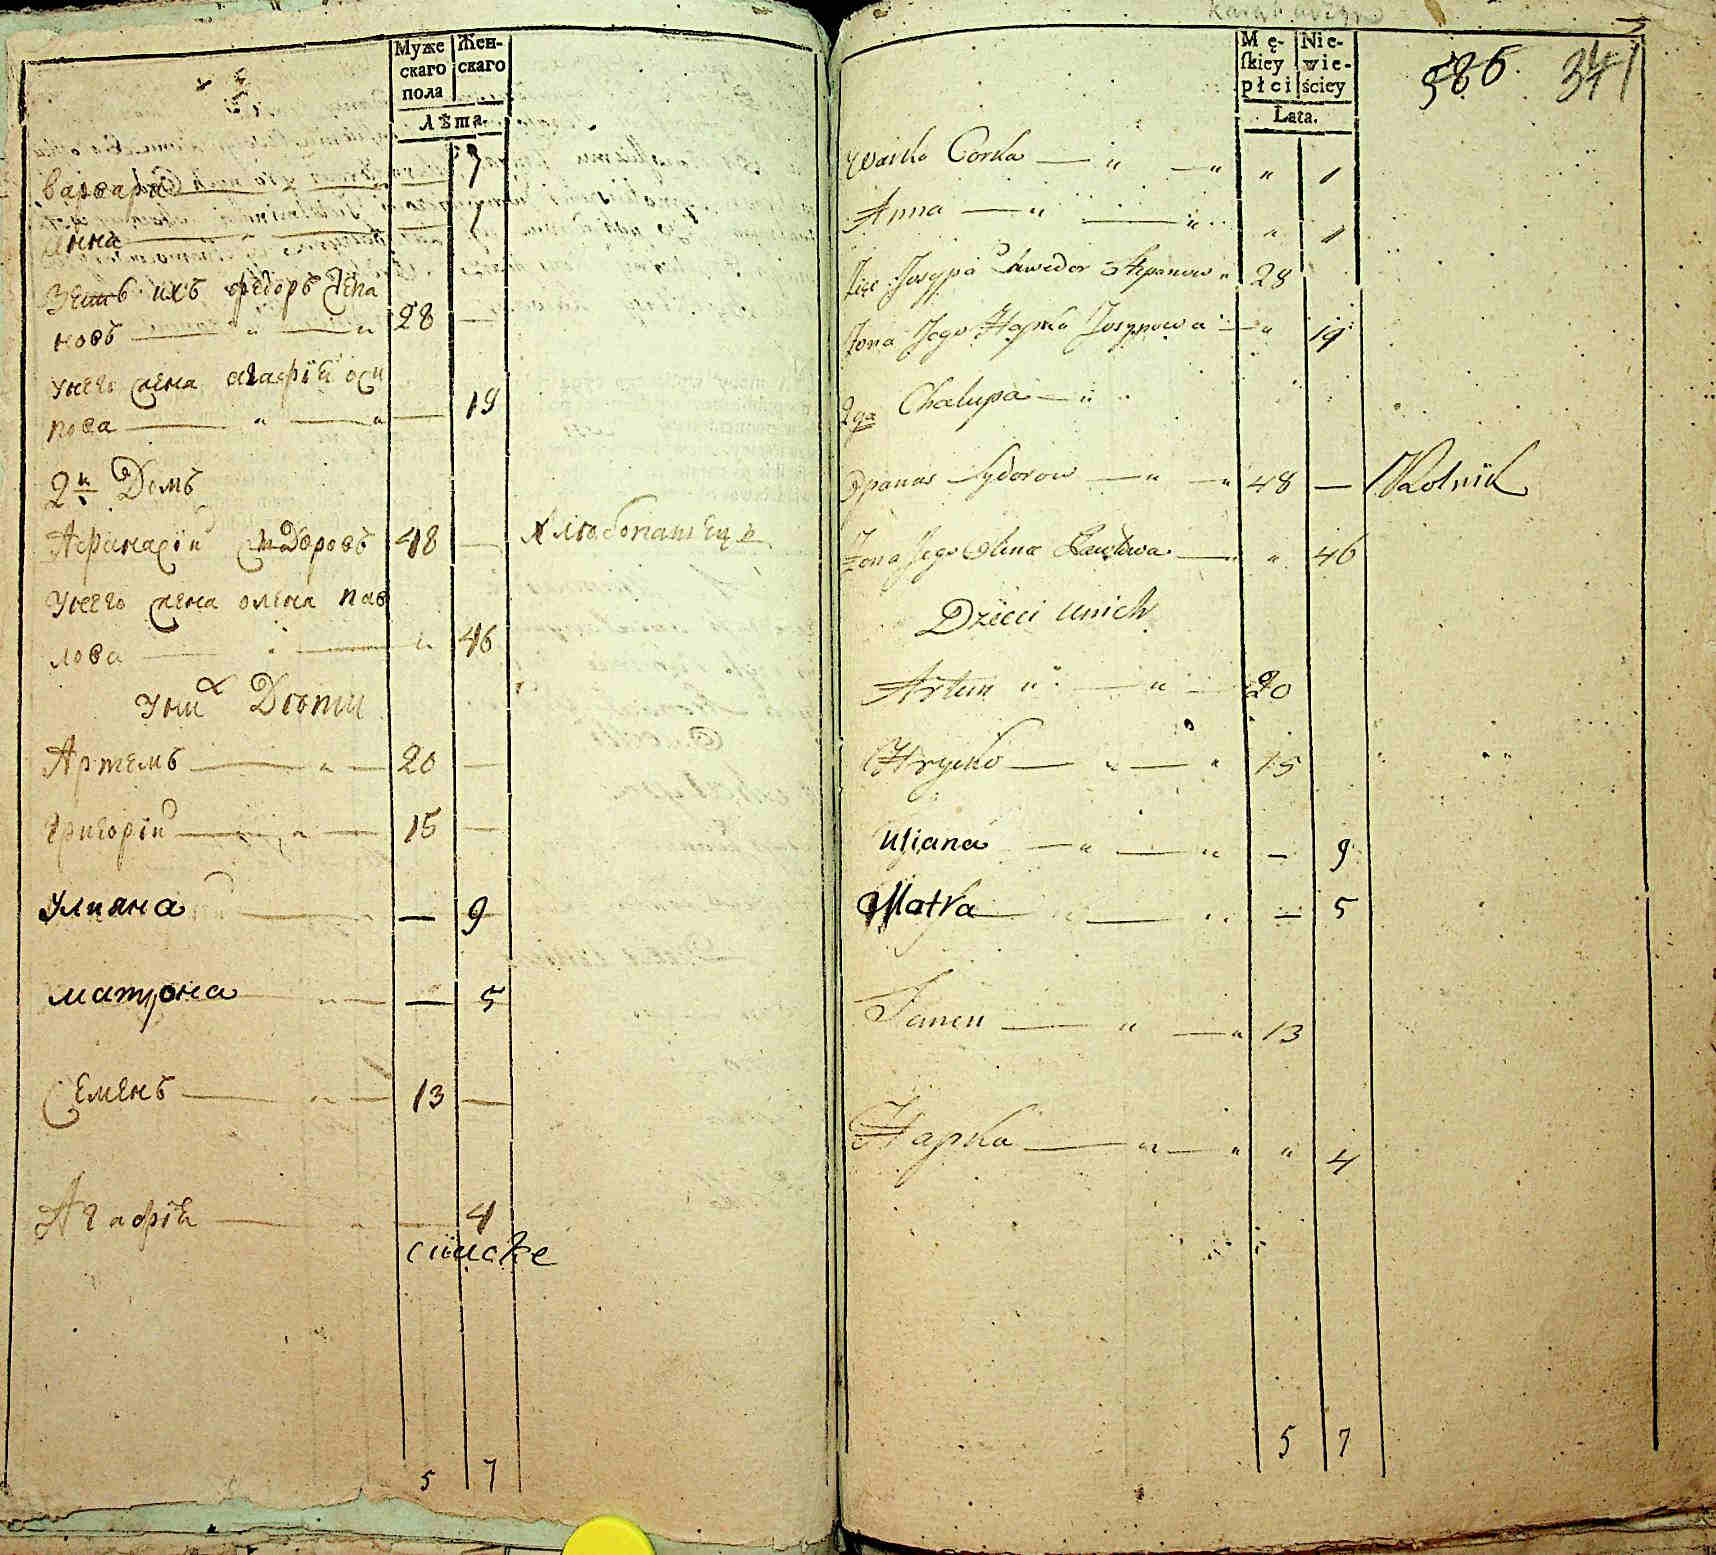 Муже
скаго
пола
Жен-
скаго
Лѣта.
Варвара 7
Анна 1
Зеть ихъ Федоръ Степа
новъ 28
У него жена Агафія Оси
пова 19
2й Домъ
Афанасій Сидоровъ 48 Хлебопашецъ
У него жена Олена Пав
лова 46
У них Дѣти
Артемъ 20
Григорій 15
Улияна 9
матрона 5
Семенъ 13
Агафія 4
5 7
Mę-
ſkiey
płci
Nie-
wie-
ściey
Lata.
586 341
Corka 1
Anna 1
Josypa Chwedor Stepanow 28
Żona Jego Hapka Josypowa 19
2ga Chalupa
Opanas Sydorow 48 Rolnik
Żona Jego Olena Pawlowa 46
Dzieci unich
Artem 20
Hrycko 15
Uljana 9
Motra 5
Semen 13
Hapka 4
5 7